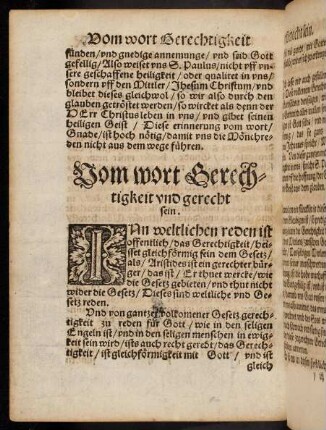 Vom wort Gerechtigkeit
sünden/vnd gnedige annemunge/ vnd sind Gott
gefellig/ Also weiset vns S. Paulus/nicht vff vn-
sere geschaffene heiligkeit / oder qualitet in vns/
sondern vff den Mittler/ Jhesum Christum/vnd
bleibet dieses gleichwol / so wir also durch den
glauben getröstet werden/ so wircket als denn der
HErr Christus leben in vns/ vnd gibet seinen
heiligen Geist / Diese erinnerung vom wort/
Gnade/ ist hoch nötig/damit vns die Mönchre-
den nicht aus dem wege führen.
Vom wort Gerech-
tigkeit vnd gerecht
sein.
IN weltlichen reden ist
offentlich/das Gerechtigkeit/hei-
sset gleichförmig sein dem Gesetz/
als/ Aristides ist ein gerechter bür-
ger/das ist/ Er thuet wercke/wie
die Gesetz gebieten/vnd thut nicht
wider die Gesetz/ Dieses sind weltliche vnd Ge-
setz reden.
Vnd von gantzer volkomener Gesetz gerech-
tigkeit zu reden für Gott / wie in den seligen
Engeln ist/vnd in den seligen menschen in ewig-
keit sein wird/ ists auch recht geredt/das Gerech-
tigkeit / ist gleichförmigkeit mit Gott / vnd ist
gleich